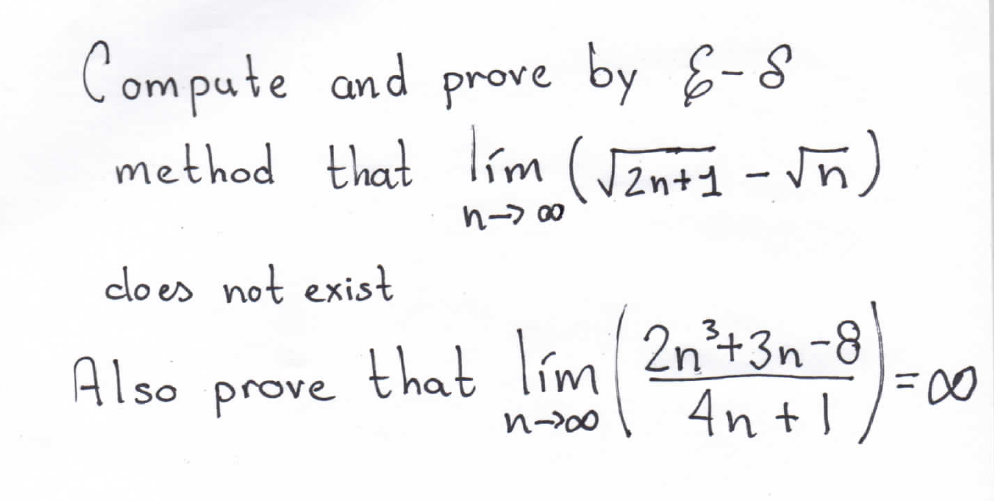 Compute and prove by ε-δ
method that lim n→∞ (√(2n+1) - √n)
does not exist
Also prove that lim n→∞ ((2n³+3n-8)/(4n+1)) = ∞